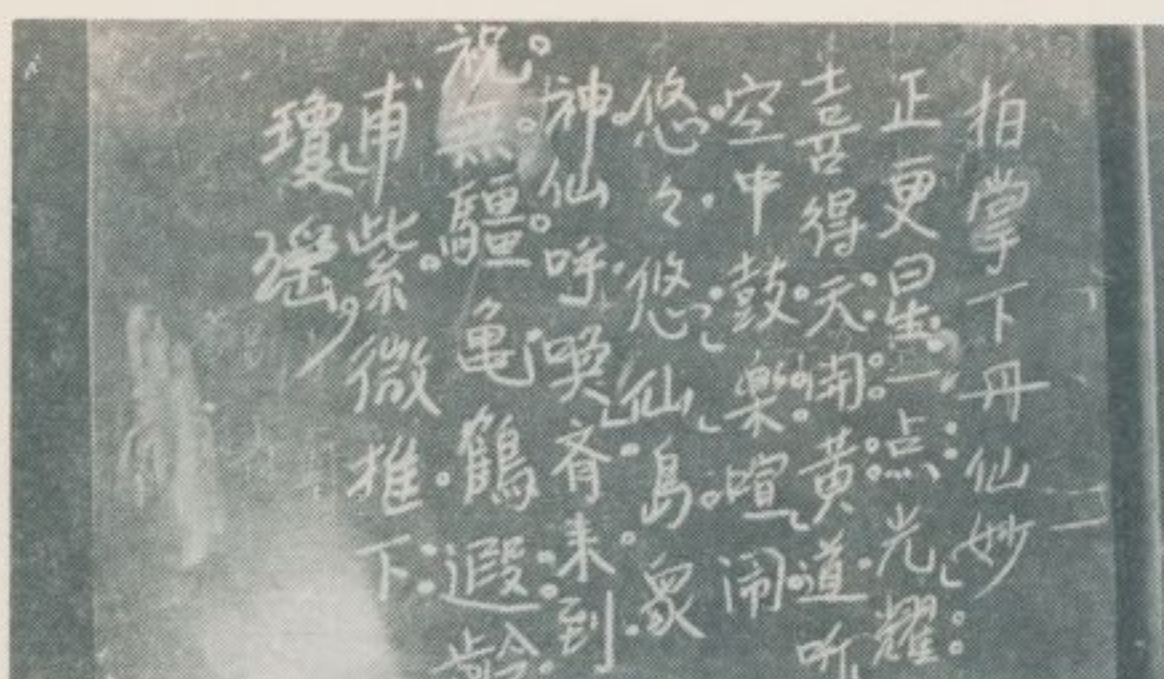 拍掌下丹仙妙
正更星一点光耀
喜得天開黄道听
空中鼓樂喧闹
悠々悠仙島衆
神仙呼喚斉来到
祝無疆亀鶴遐齡
甫紫微推下
瓊瑶